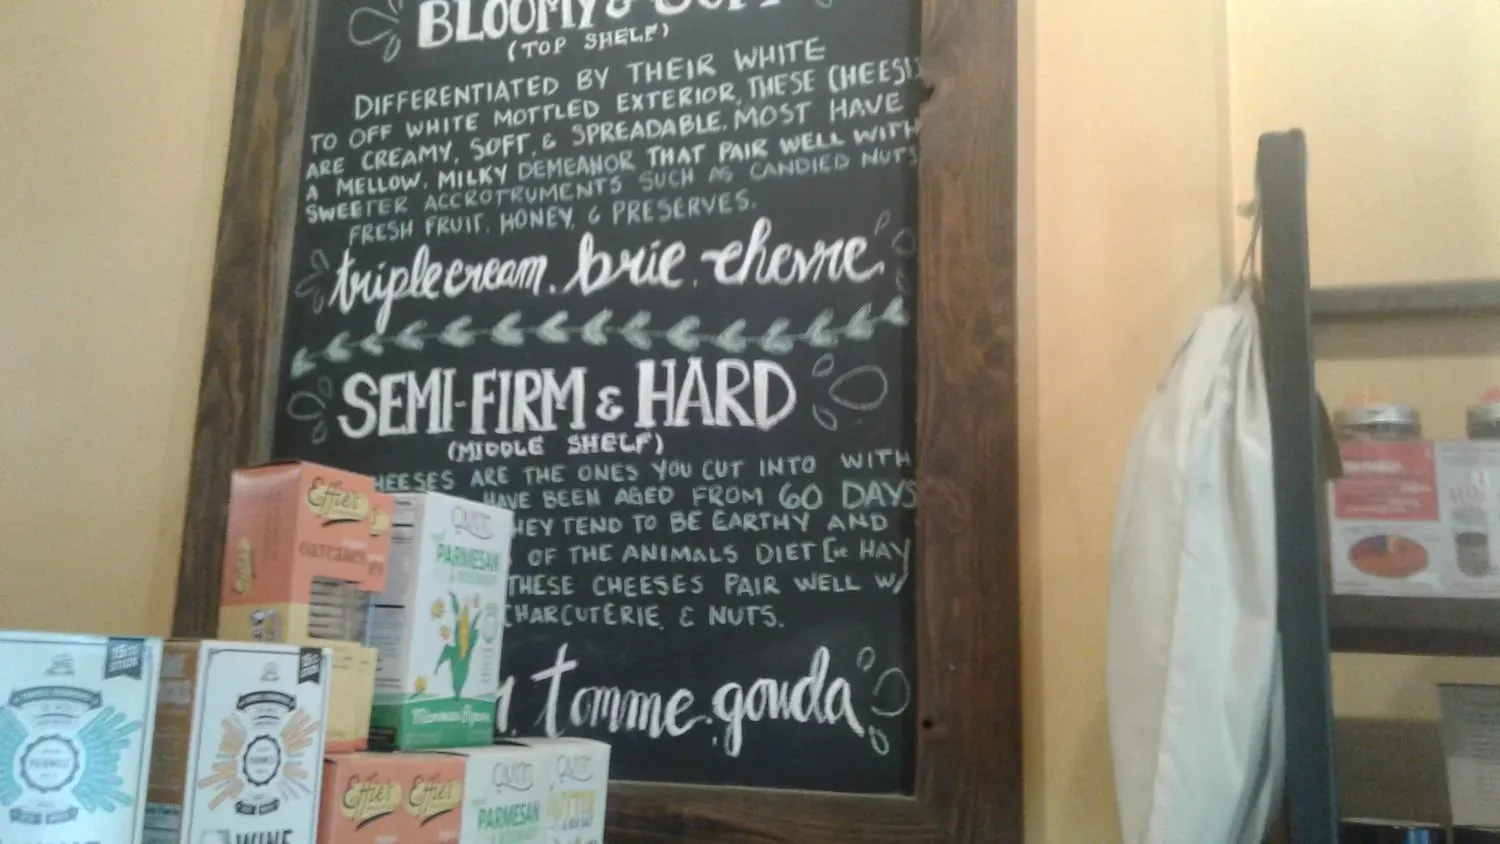 BLOOMY &
(TOP SHELF)
DIFFERENTIATED BY THEIR WHITE
TO OFF WHITE MOTTLED EXTERIOR, THESE CHEESES
ARE CREAMY, SOFT, & SPREADABLE. MOST HAVE
A MELLOW, MILKY DEMEANOR THAT PAIR WELL WITH
SWEETER ACCROTRUMENTS SUCH AS CANDIED NUTS
FRESH FRUIT, HONEY, & PRESERVES.
triple cream. brie. chevre.
SEMI-FIRM & HARD
(MIDDLE SHELF)
CHEESES ARE THE ONES YOU CUT INTO WITH
HAVE BEEN AGED FROM 60 DAYS
THEY TEND TO BE EARTHY AND
OF THE ANIMALS DIET [ie HAY
THESE CHEESES PAIR WELL W/
CHARCUTERIE, & NUTS.
tomme. gouda
Effie's
OATCAKES
PARMESAN
Effie's
Effie's
PARMESAN
WINE